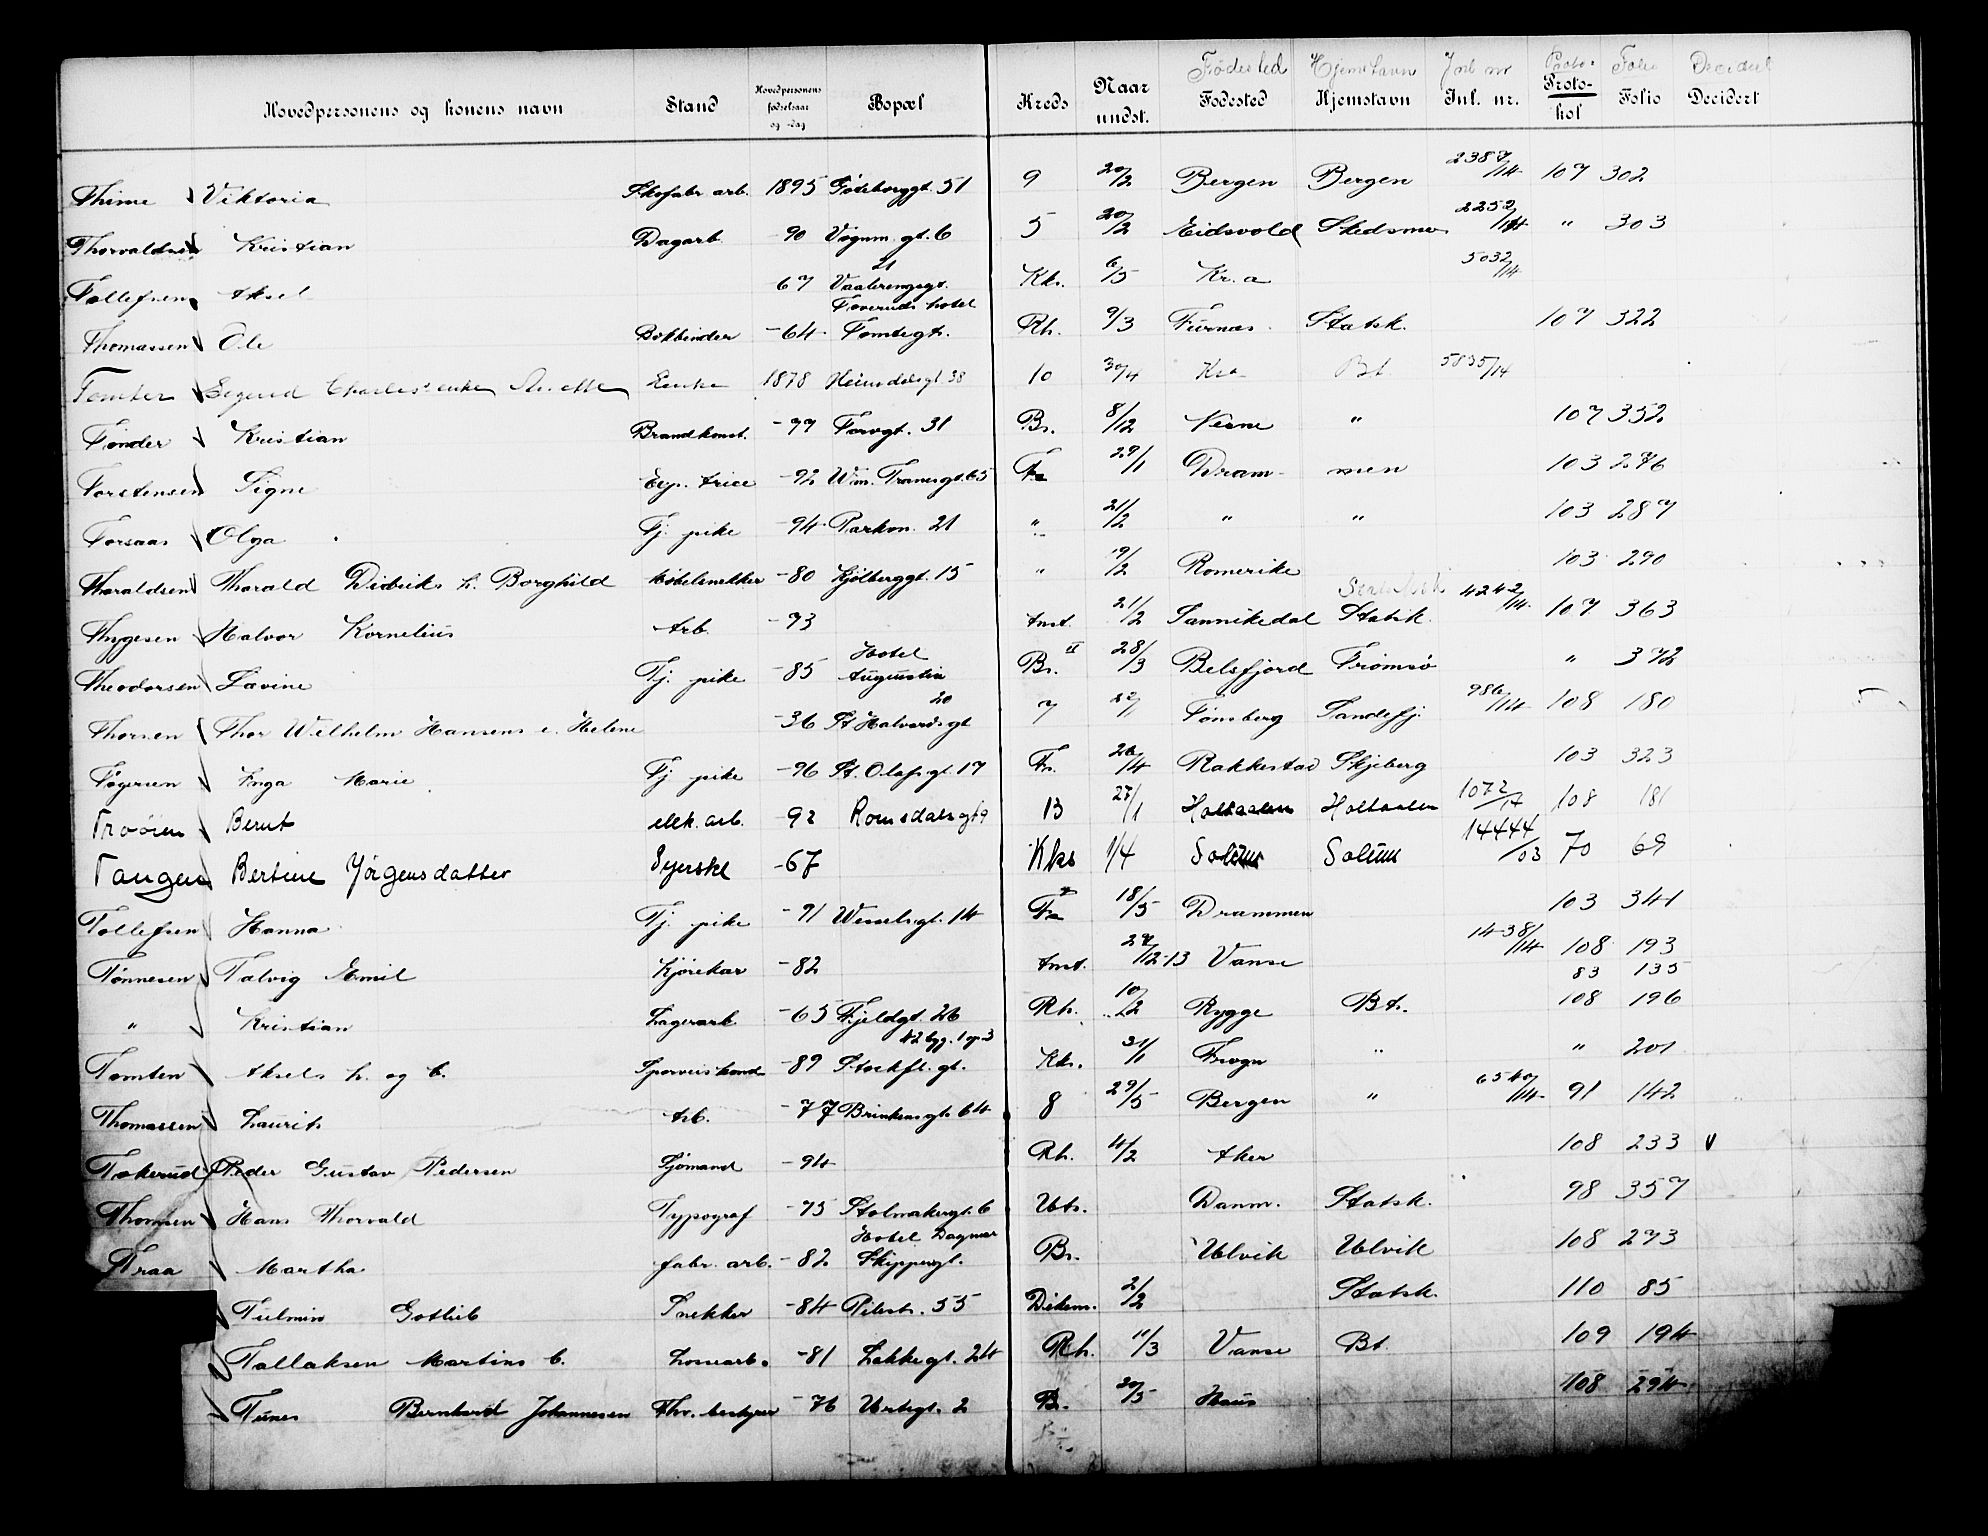 Fødested Hjemstavn Jnl nr Proto- Folio Decidert
Hovedpersonens og konens navn Stand Hovedpersonens fødselsaar og -dag Bopæl Kreds Naar undst. Fødested Hjemstavn Jnl. nr. Proto-kol Folio Decidert
Thime Viktoria Skofabr arb. 1895 Göteborggt. 51 9 20/2 Bergen Bergen 2387/14 107 302
Thorvaldsen Kristian Dagarb. -90 Vognm. gt. 6 5 20/2 Eidsvold Skedsmo 2252/14 " 303
Tollefsen Aksel 67 21 Vaalerenggt. Kks. 6/5 Kr.a 5032/14
Thomassen Ole Bokbinder -64 Toveruds hotel Tomtegt. Rh. 9/3 Furnæs Statsk. 107 322
Tomter Sigurd Charles' enke Anette Enke 1878 Heimdalsgt 38 10 30/4 Kra Bt. 5835/14
Tønder Kristian Brandkonst. -77 Torvgt. 31 Br. 8/12 Nesne " 107 352
Torstensen Signe Exp. trice -92 Wm. Tranesgt. 65 Fr 29/1 Dram- men 103 276
Torsaas Olga Tj. pike -94 Parkvn. 21 " 21/2 " " 103 287
Tharaldsen Tharald Didriks h. Borghild Møbelsnekker -80 Kjølberggt. 15 " 19/2 Romerike 103 290
Thygesen Halvor Kornelius Arb. -93 Anst. 21/2 Sannikedal Statsk. 4242/14 107 363
Theodorsen Lavine Tj. pike -85 Hotel Augustin Br. II 28/3 Belsfjord Tromsø " 372
Thorsen Thor Wilhelm Hansens e. Helene -36 St Halvardsgt 20 7 Tønsberg Sandefj. 986/14 108 180
Tøgersen Inga Marie Tj. pike -96 St. Olafsgt. 17 Fr. 26/4 Rakkestad Skjeberg 103 323
Trøøien Berut elek. arb. -92 Romsdalsgt 9 13 27/1 Holtaalen Holtaalen 1072/14 108 181
Tangen Bertine Jørgensdatter Syerske -67 Kks 1/4 Solum Solum 14444/03 70 69
Tollefsen Hanna Tj. pike -91 Wesselsgt. 14 Fr 18/5 Drammen 103 341
Tønnesen Talvig Emil Kjørekar -82 Anst. 29/12-13 Vanse 1438/14 108 193
83 135
" Kristian Lagerarb. -65 Fjeldgt. 26 Rh. 10/2 Rygge Bt. 108 196
Tomten Aksels h. og b. Sporveiskond -89 42 byg. 1 op 3 Stockfl. gt. Kks. 31/1 Frogn " " 201
Thomassen Laurits Arb. -77 Brinkensgt. 64 8 29/5 Bergen " 6540/14 91 142
Tokerud Peder Gustav Pedersen Sjømand -94 Rh. 4/2 Aker 108 233 V
Thomsen Hans Thorvald Typograf -75 Stolmakergt. 6 Uts. Danm. Statsk. 98 357
Traa Martha fabr. arb. -82 Hotel Dagmar Skippergt. Br. Ulvik Ulvik 108 273
Tulmin Gotlieb Snekker -84 Pilestr. 55 Dikem. 2/2 Statsk. 110 85
Tallaksen Martins b. Losearb. -81 Lakkegt. 24 Rh. 11/3 Vanse Bt. 109 194
Tunes Bernhard Johannesen Fhv. bestyrer -76 Urtegt. 2 B. 20/5 Haus 108 294